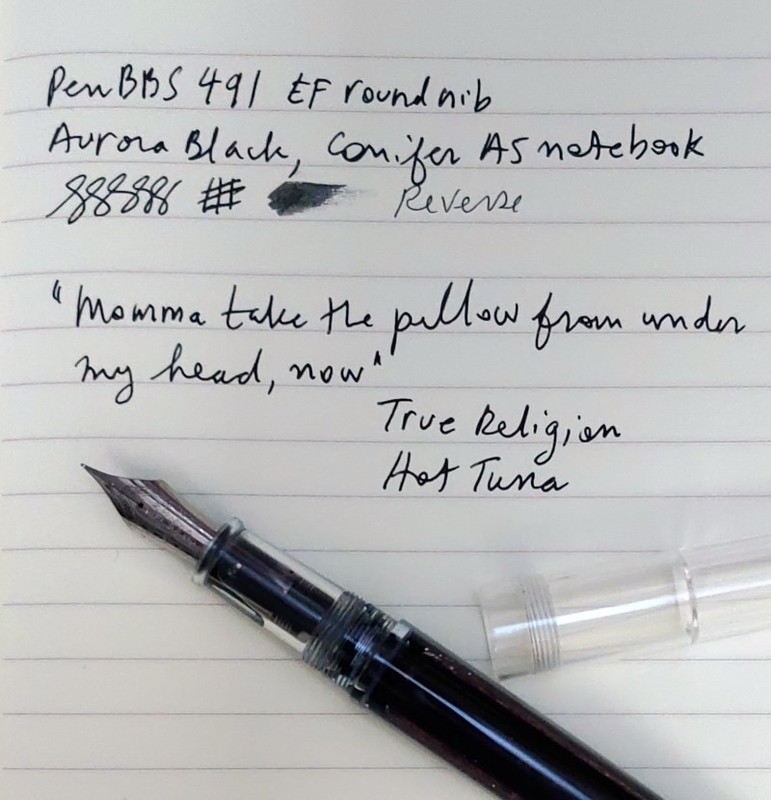 PenBBS 491 EF round nib
Aurora Black, Conifer A5 notebook
888888 # Reverse
"Momma take the pillow from under
my head, now"
True Religion
Hot Tuna